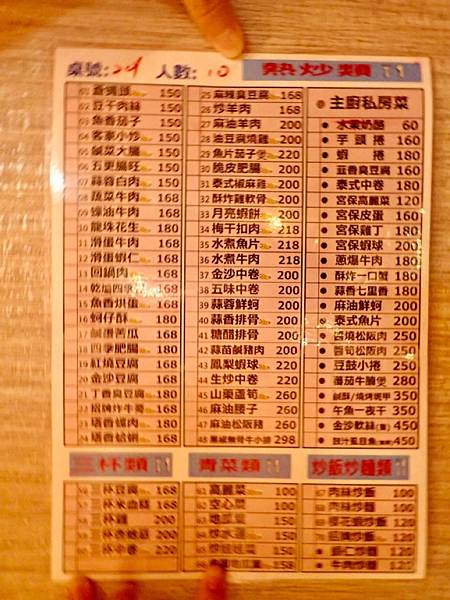 桌號:24 人數:10 熱炒類
01 蒼蠅頭 150
02 豆干肉絲 150
03 魚香茄子 150
04 客家小炒 150
05 鹹菜大腸 150
06 五更腸旺 150
07 蒜蓉白肉 150
08 蔬菜牛肉 168
09 蠔油牛肉 168
10 龍珠花生 180
11 滑蛋牛肉 168
12 滑蛋蝦仁 168
13 回鍋肉 168
14 乾煸四季 168
15 魚香烘蛋 168
16 蚵仔酥 180
17 鹹蛋苦瓜 168
18 四季肥腸 180
19 紅燒豆腐 168
20 金沙豆腐 168
21 丁香臭豆腐 180
22 招牌炸牛蒡 168
23 塔香螺肉 180
24 塔香蛤蜊 168
25 麻辣臭豆腐 168
26 炒羊肉 168
27 麻油羊肉 200
28 油豆腐燒雞 200
29 魚片茄子煲 220
30 脆皮肥腸 200
31 泰式椒麻雞 200
32 酥炸雞軟骨 200
33 月亮蝦餅 200
34 梅干扣肉 218
35 水煮魚片 218
36 水煮牛肉 218
37 金沙中卷 200
38 五味中卷 200
39 蒜蓉鮮蚵 200
40 蒜香排骨 200
41 糖醋排骨 200
42 蒜苗鹹豬肉 200
43 鳳梨蝦球 220
44 生炒中卷 220
45 山東蘆筍 260
46 麻油腰子 260
47 麻油松阪豬 260
48 黑椒無骨牛小排 298
主廚私房菜
水果奶酪 60
芋頭捲 160
蝦捲 180
蒜香臭豆腐 160
泰式中卷 180
宮保高麗菜 120
宮保皮蛋 160
宮保雞丁 180
宮保蝦球 200
蔥爆牛肉 180
酥炸一口蟹 180
蒜香七里香 180
麻油鮮蚵 200
泰式魚片 200
醬燒松阪肉 250
醬筍松阪肉 250
豆鼓小捲 250
蕃茄牛腩煲 280
鹹酥/燒烤斑甲 350
午魚一夜干 350
金沙軟絲 450
豉汁虱目魚 450
三杯類
三杯豆腐 168
三杯米血糕 168
三杯雞 200
三杯杏鮑菇 200
三杯中卷 220
青菜類
61 高麗菜 100
62 空心菜 100
63 地瓜葉 100
64 炒水蓮 150
65 150
66 158
炒飯炒麵類
67 肉絲炒飯 100
68 肉絲炒麵 100
69 櫻花蝦炒飯 120
70 招牌炒飯 120
蝦仁炒麵 120
牛肉炒麵 120